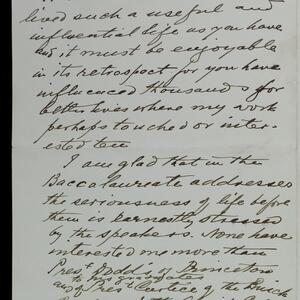 lived such a useful and
influential life as you have
and it must be enjoyable
in its retrospect for you have
influenced thousands for
better lives where my work
perhaps touched or inter-
ested ten
I am glad that in the
Baccalaureate addresses
the seriousness of life before
them is earnestly stressed
by the speakers. None have
interested me more than
Prest Dodds of Princeton
to his graduates
and of Prest Justice of the